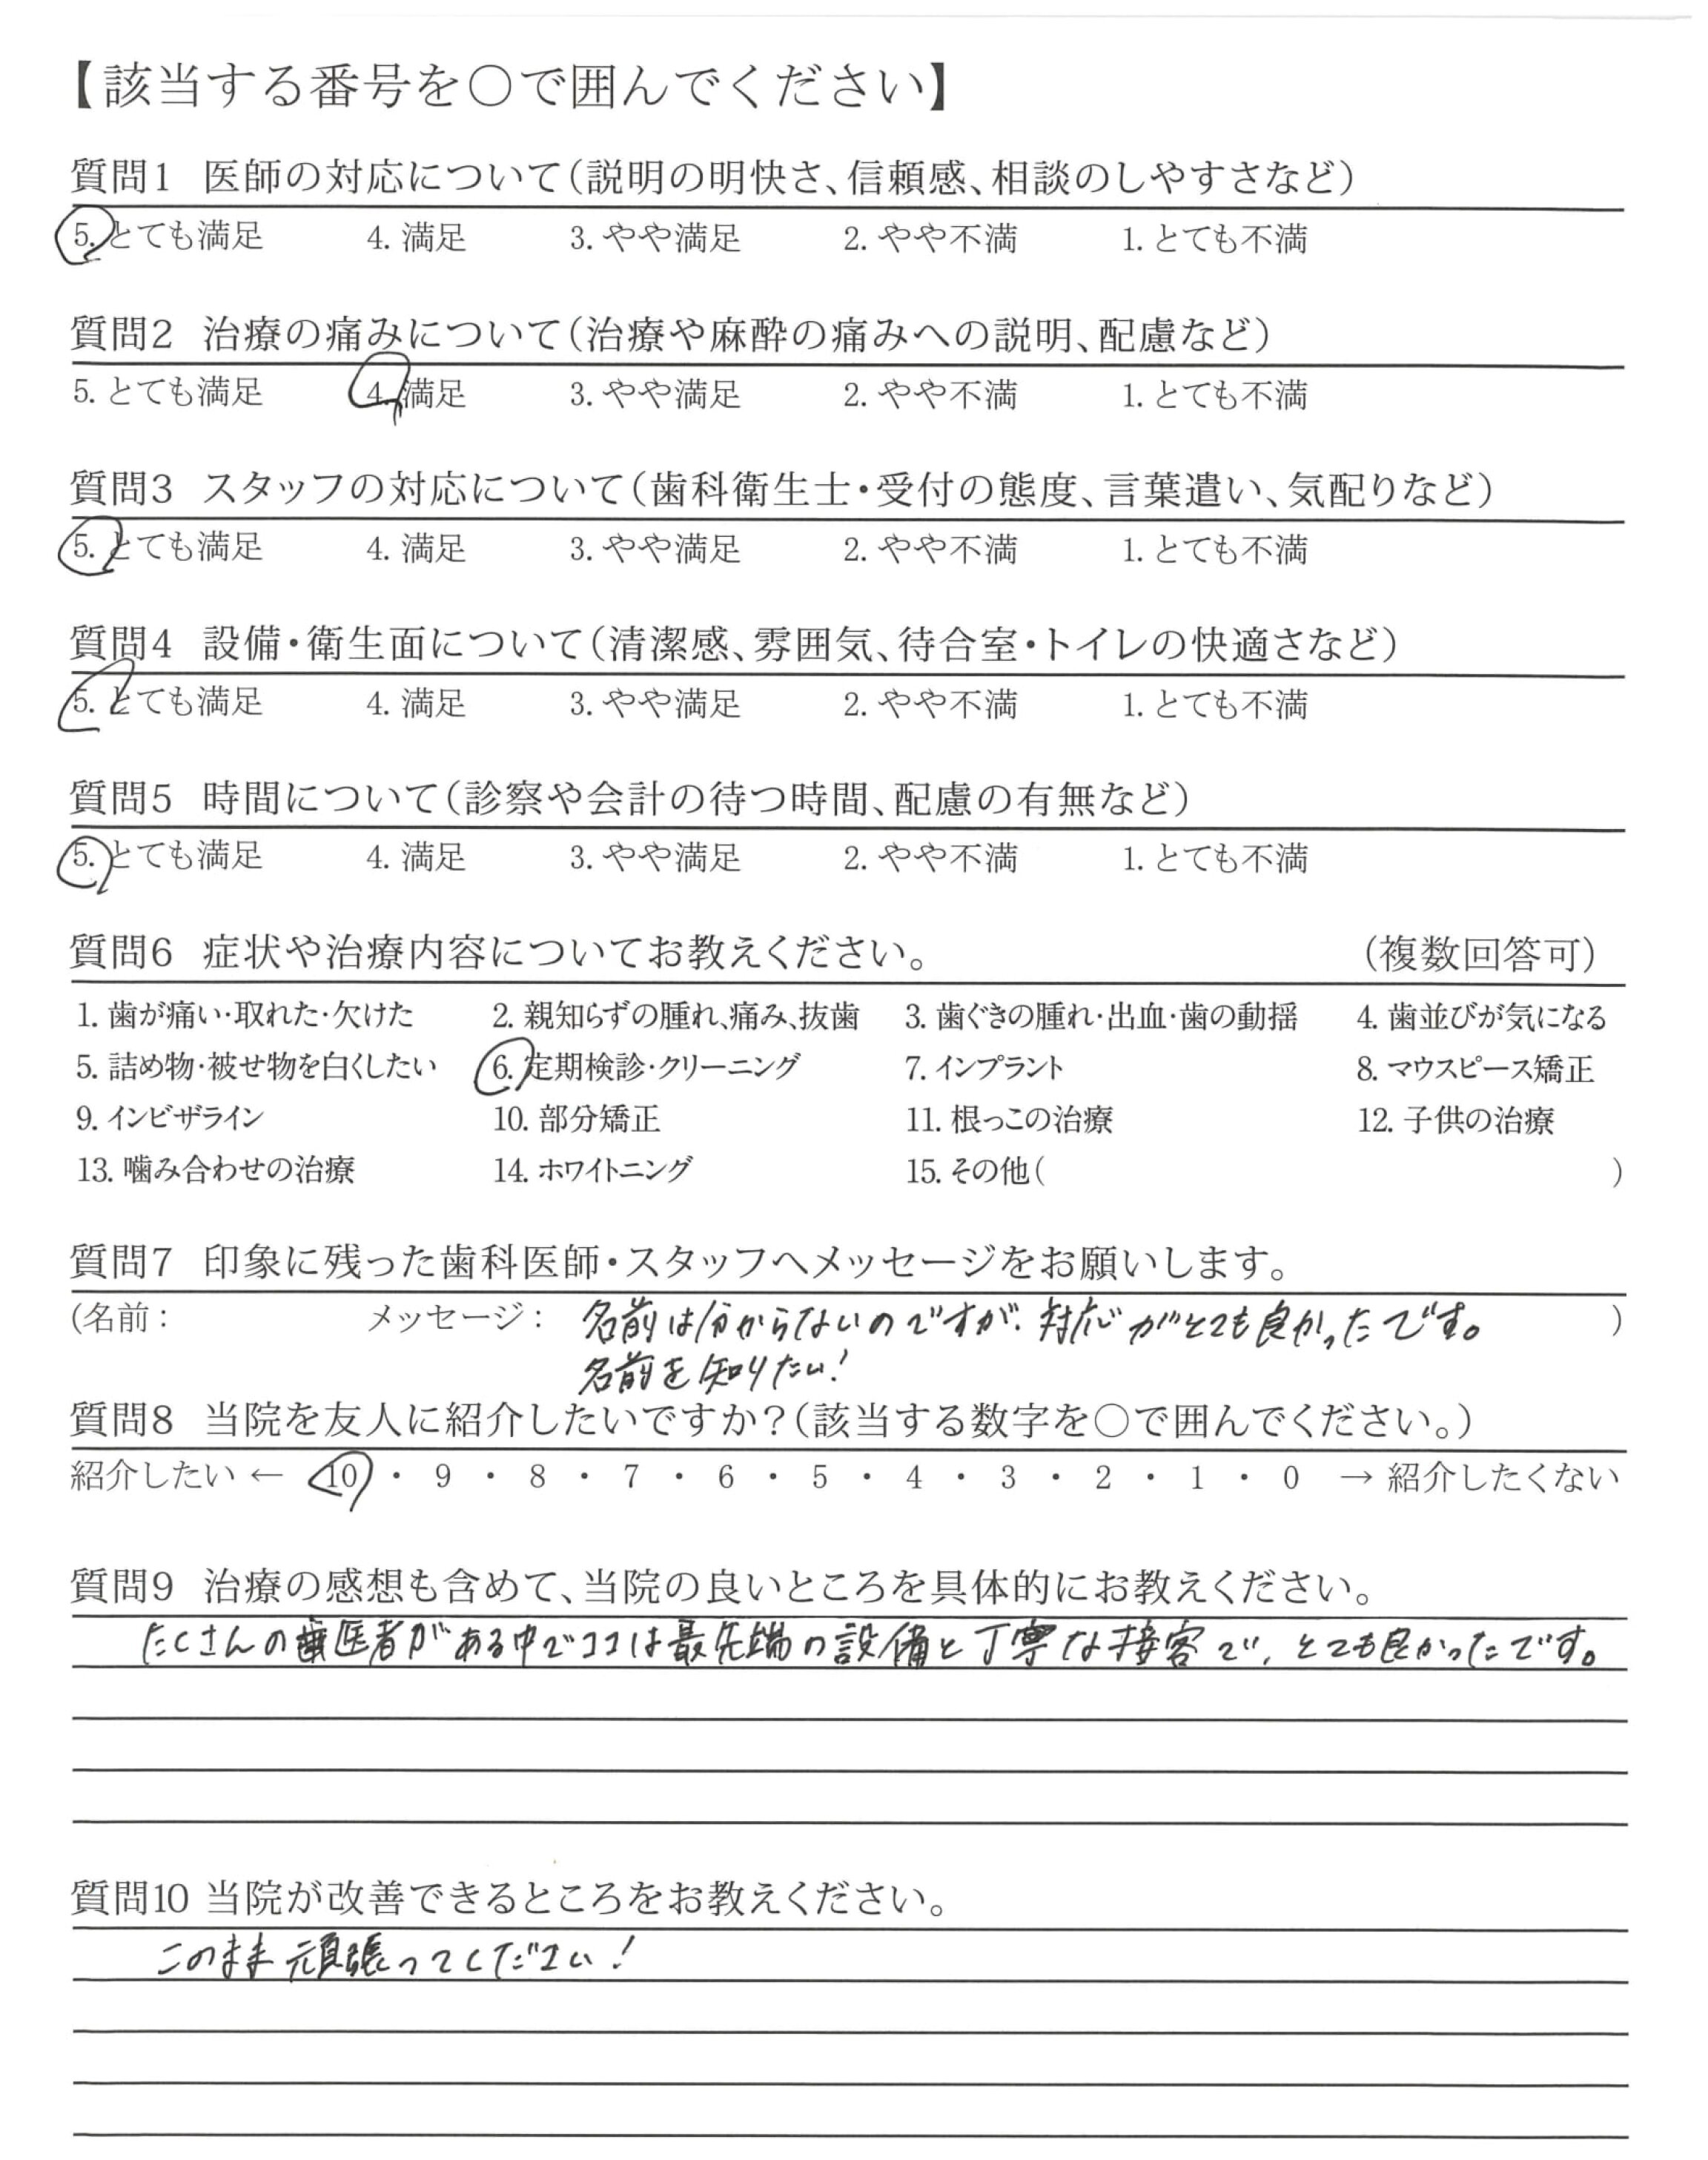 【該当する番号を○で囲んでください】
質問1 医師の対応について(説明の明快さ、信頼感、相談のしやすさなど)
5. とても満足 4. 満足 3. やや満足 2. やや不満 1. とても不満
質問2 治療の痛みについて(治療や麻酔の痛みへの説明、配慮など)
5. とても満足 4. 満足 3. やや満足 2. やや不満 1. とても不満
質問3 スタッフの対応について(歯科衛生士・受付の態度、言葉遣い、気配りなど)
5. とても満足 4. 満足 3. やや満足 2. やや不満 1. とても不満
質問4 設備・衛生面について(清潔感、雰囲気、待合室・トイレの快適さなど)
5. とても満足 4. 満足 3. やや満足 2. やや不満 1. とても不満
質問5 時間について(診察や会計の待つ時間、配慮の有無など)
5. とても満足 4. 満足 3. やや満足 2. やや不満 1. とても不満
質問6 症状や治療内容についてお教えください。 (複数回答可)
1. 歯が痛い・取れた・欠けた 2. 親知らずの腫れ、痛み、抜歯 3. 歯ぐきの腫れ・出血・歯の動揺 4. 歯並びが気になる
5. 詰め物・被せ物を白くしたい 6. 定期検診・クリーニング 7. インプラント 8. マウスピース矯正
9. インビザライン 10. 部分矯正 11. 根っこの治療 12. 子供の治療
13. 噛み合わせの治療 14. ホワイトニング 15. その他( )
質問7 印象に残った歯科医師・スタッフへメッセージをお願いします。
(名前: メッセージ: 名前は分からないのですが、対応がとても良かったです。 )
名前を知りたい!
質問8 当院を友人に紹介したいですか?(該当する数字を○で囲んでください。)
紹介したい ← 10 ・ 9 ・ 8 ・ 7 ・ 6 ・ 5 ・ 4 ・ 3 ・ 2 ・ 1 ・ 0 → 紹介したくない
質問9 治療の感想も含めて、当院の良いところを具体的にお教えください。
たくさんの歯医者がある中でココは最先端の設備と丁寧な接客で、とても良かったです。
質問10 当院が改善できるところをお教えください。
このまま頑張ってください!